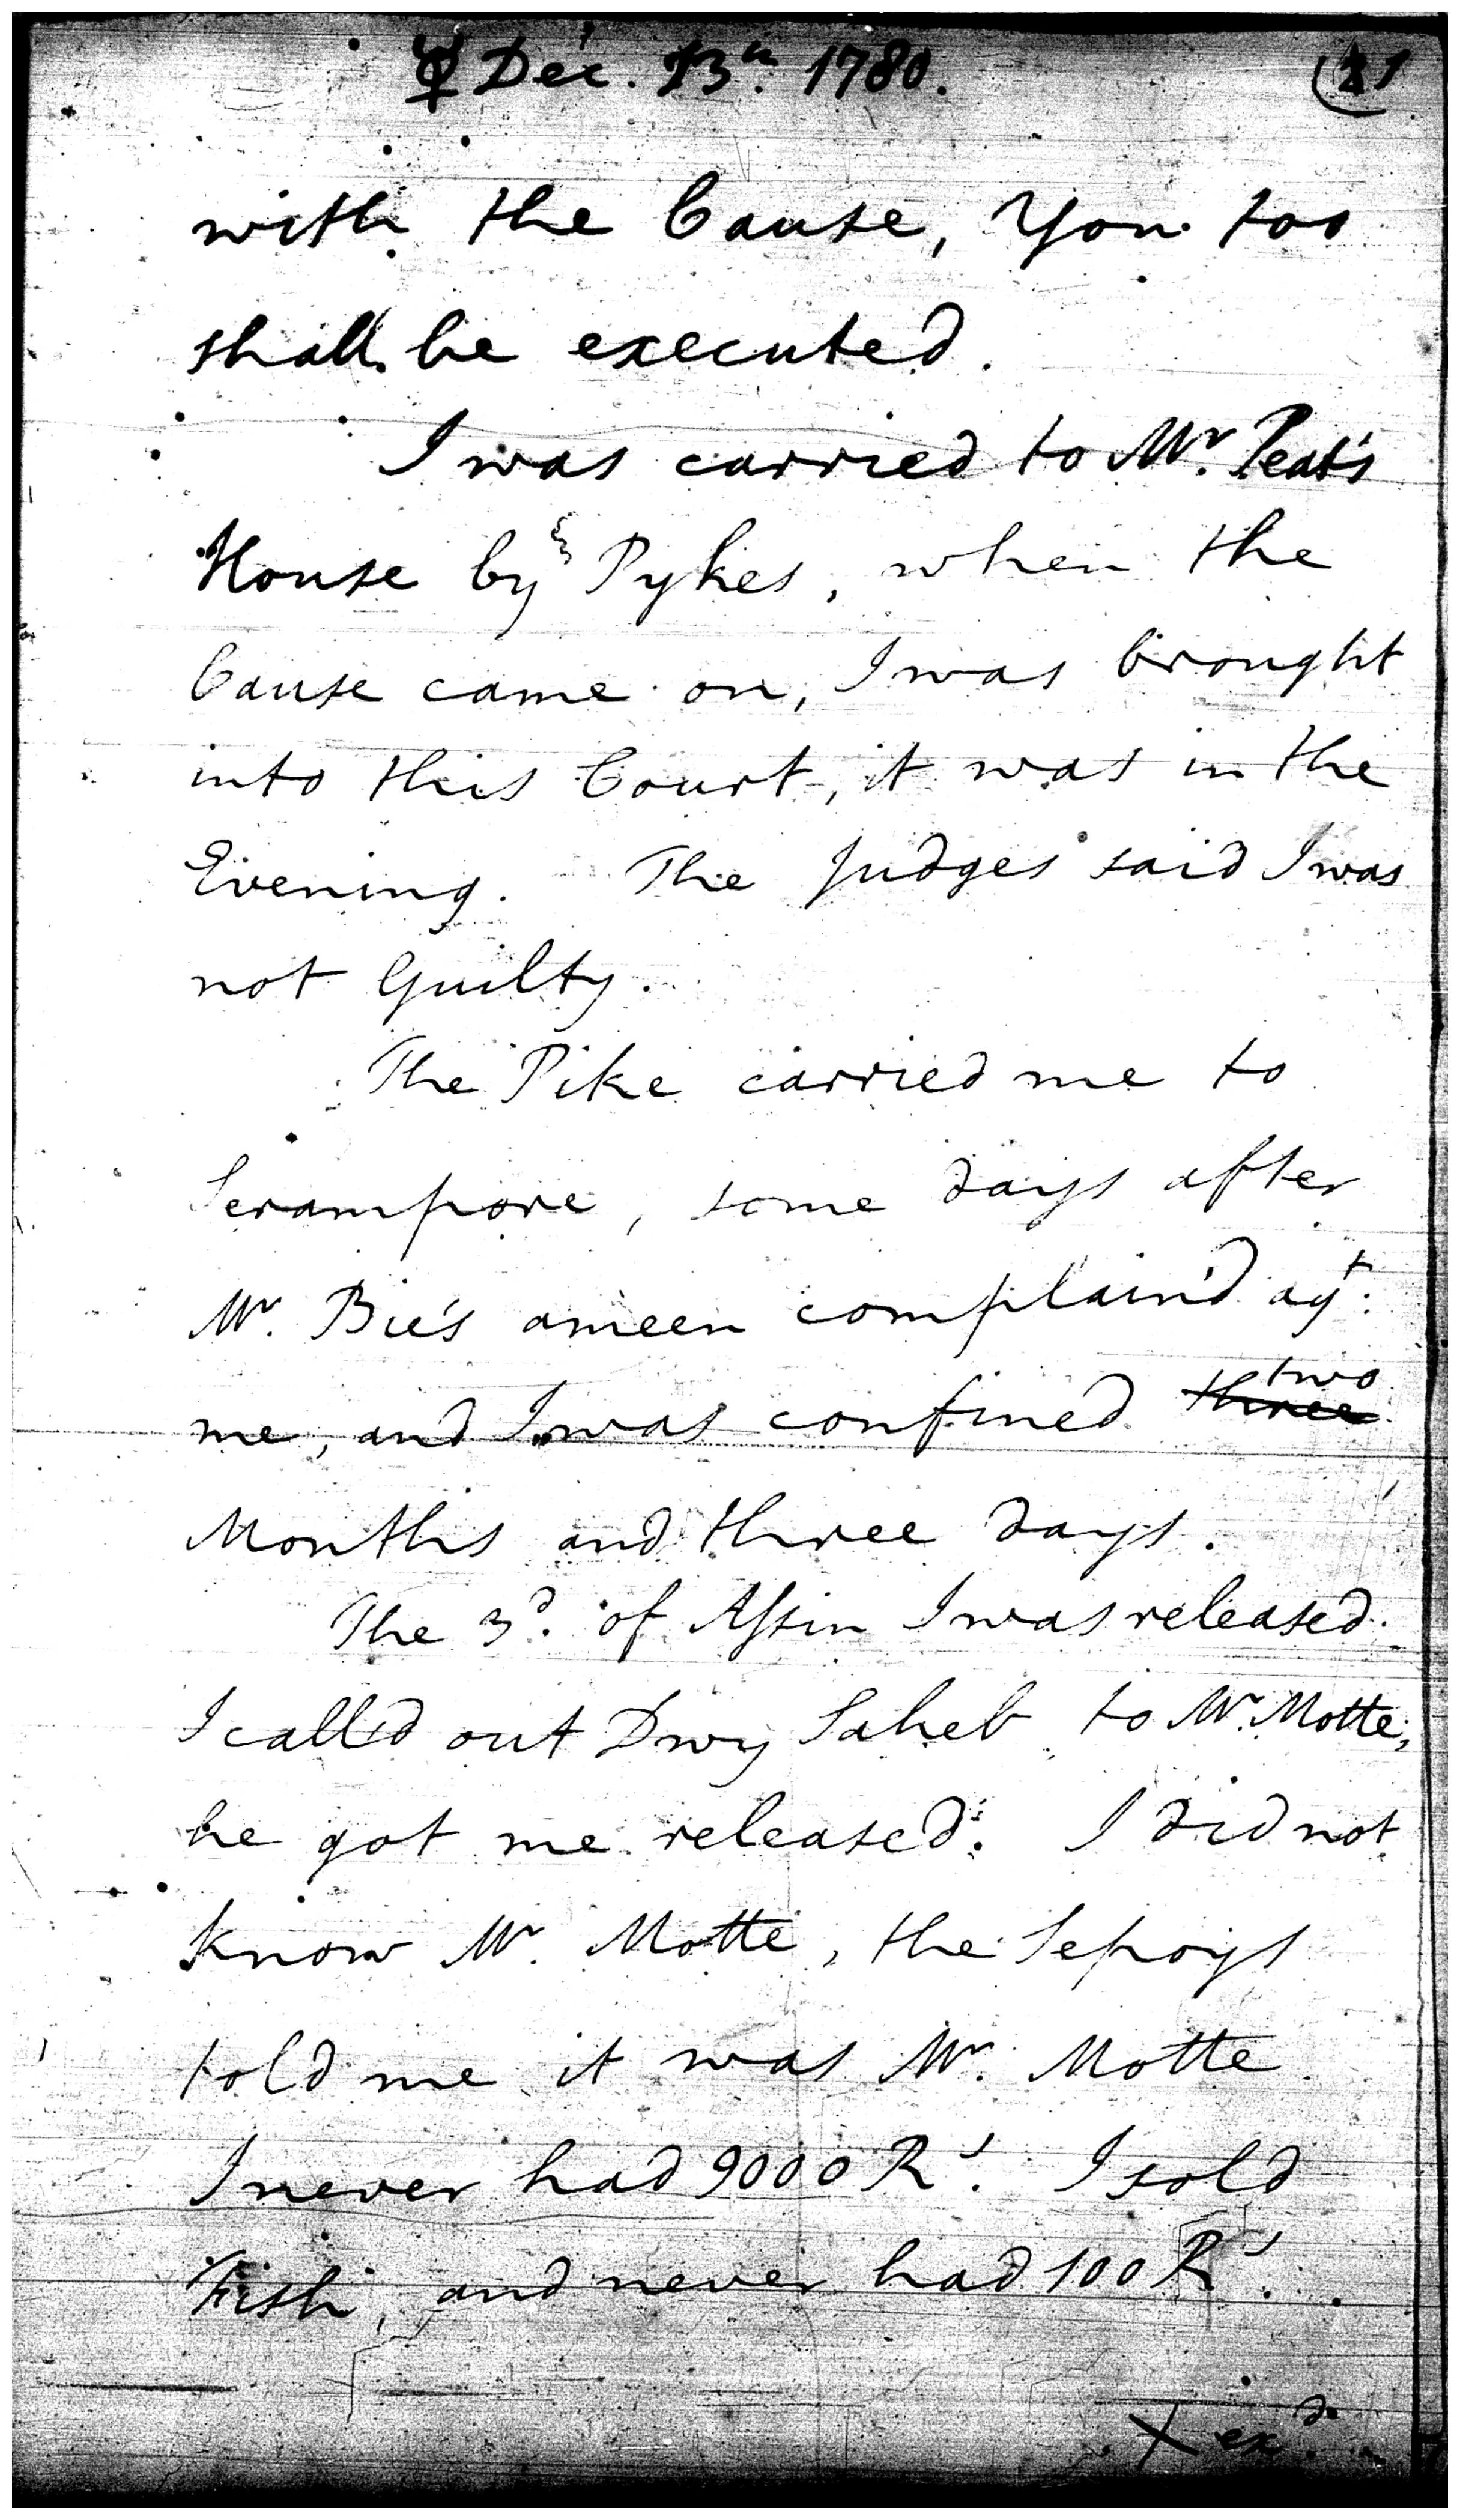 Dec. 13th. 1780.
with the Cause, You too
shall be executed.
I was carried to Mr. Peat's
House by Pykes, when the
Cause came on, I was brought
into this Court, it was in the
Evening. The Judges said I was
not Guilty.
The Pike carried me to
Serampore, some days after
Mr. Bie's ameen complain'd agt.
me, and I was confined three two
Months and three days.
The 3d. of Assin I was released.
I call'd out Dwy Saheb to Mr. Motte,
he got me released. I did not
know Mr. Motte, the Sepoys
told me it was Mr. Motte
I never had 9000 Rs. I sold
Fish, and never had 100 Rs.
X exd.